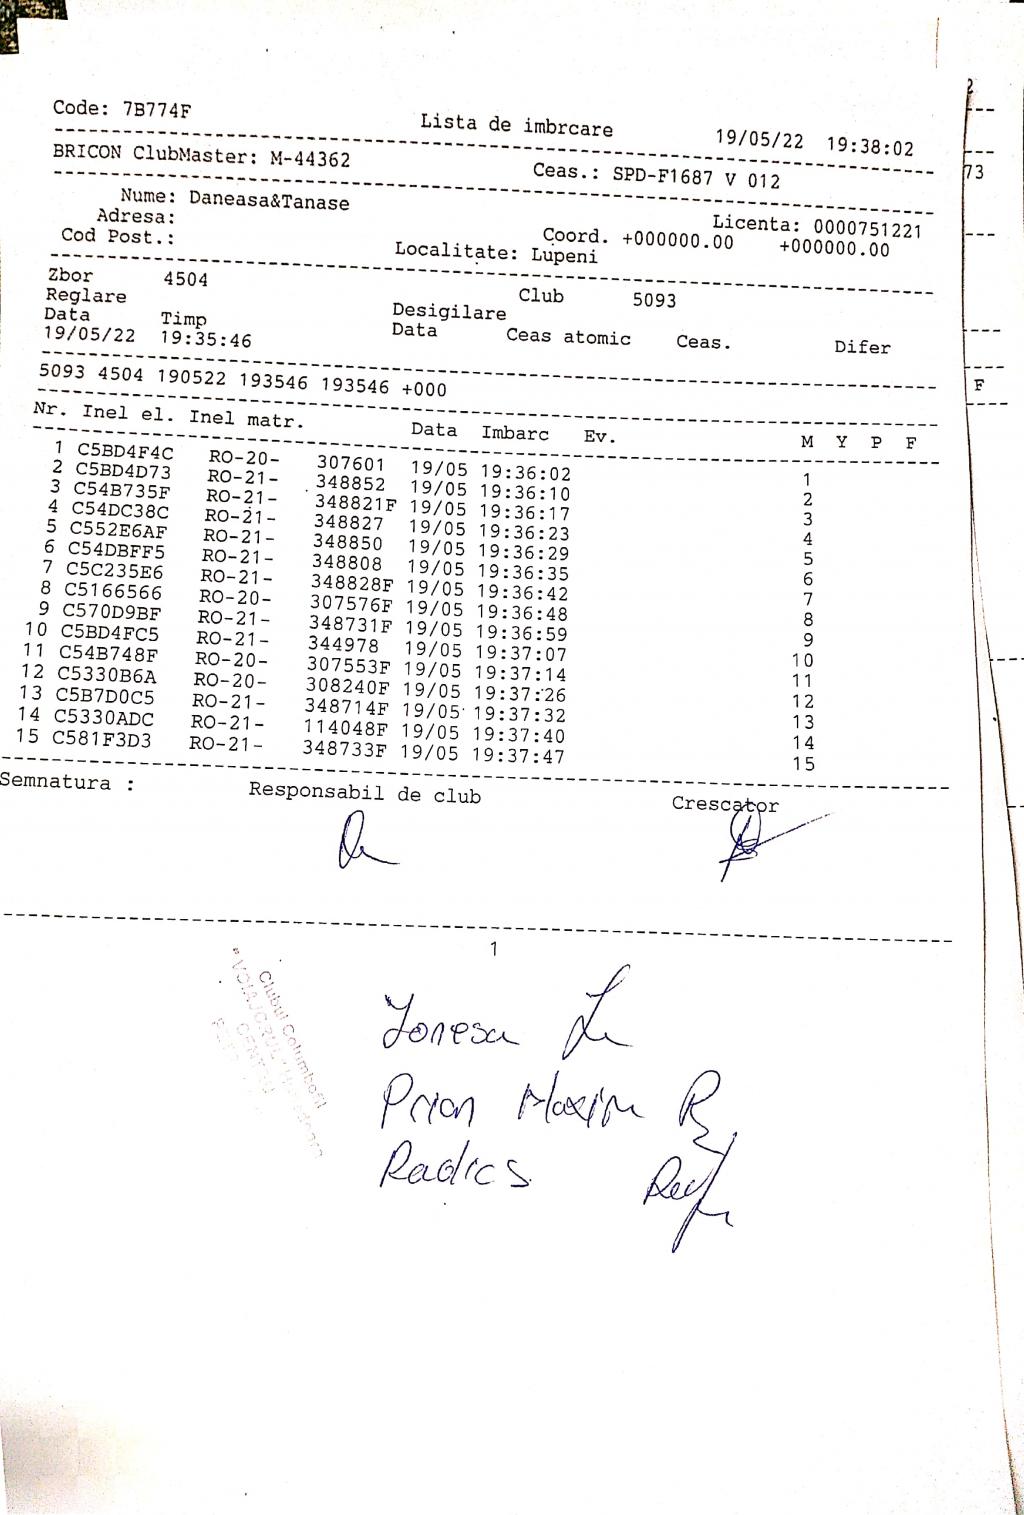 Code: 7B774F Lista de imbrcare 19/05/22 19:38:02
BRICON ClubMaster: M-44362 Ceas.: SPD-F1687 V 012
Nume: Daneasa&Tanase Licenta: 0000751221
Adresa: Coord. +000000.00 +000000.00
Cod Post.: Localitate: Lupeni
Zbor 4504 Club 5093
Reglare Desigilare
Data Timp Data Ceas atomic Ceas. Difer
19/05/22 19:35:46
5093 4504 190522 193546 193546 +000
Nr. Inel el. Inel matr. Data Imbarc Ev. M Y P F
1 C5BD4F4C RO-20- 307601 19/05 19:36:02 1
2 C5BD4D73 RO-21- 348852 19/05 19:36:10 2
3 C54B735F RO-21- 348821F 19/05 19:36:17 3
4 C54DC38C RO-21- 348827 19/05 19:36:23 4
5 C552E6AF RO-21- 348850 19/05 19:36:29 5
6 C54DBFF5 RO-21- 348808 19/05 19:36:35 6
7 C5C235E6 RO-21- 348828F 19/05 19:36:42 7
8 C5166566 RO-20- 307576F 19/05 19:36:48 8
9 C570D9BF RO-21- 348731F 19/05 19:36:59 9
10 C5BD4FC5 RO-21- 344978 19/05 19:37:07 10
11 C54B748F RO-20- 307553F 19/05 19:37:14 11
12 C5330B6A RO-20- 308240F 19/05 19:37:26 12
13 C5B7D0C5 RO-21- 348714F 19/05 19:37:32 13
14 C5330ADC RO-21- 114048F 19/05 19:37:40 14
15 C581F3D3 RO-21- 348733F 19/05 19:37:47 15
Semnatura : Responsabil de club Crescator
1
Clubul Columbofil
Prian Maxim
Radics
73
F